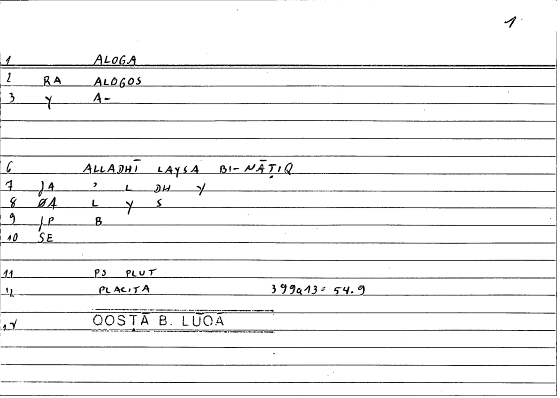 1
1 ALOGA
2 RA ALOGOS
3 Y A-
6 ALLADHĪ LAYSA BI-NĀṬIQ
7 JA ' L DH Y
8 ØA L Y S
9 JP B
10 SE
11 PS PLUT
12 PLACITA 399a13 = 54.9
14 QOSṬĀ B. LŪQĀ